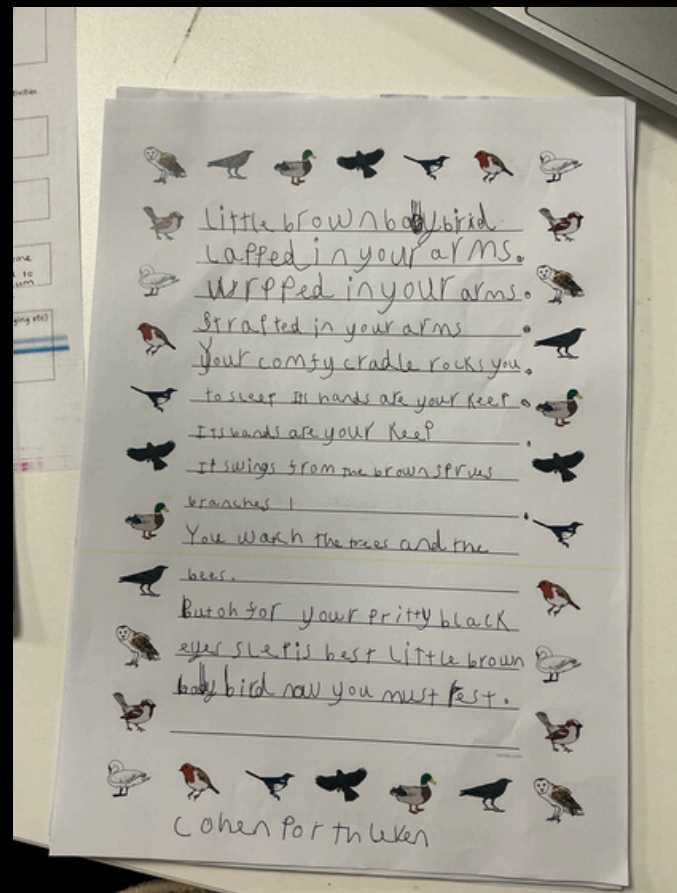 tivities
ome
d to
um
ging etc)
Little brown baby birid.
Lapped in your arms.
wrpped in your arms.
Strafted in your arms.
Your comfy cradle rocks you.
to sleep Its hands are your keep.
Itsbands are your keep.
It swings from the brown sprues
branches.
You watch the trees and the
bees.
But oh for your pritty black
eyes slepis best Little brown
baby bird now you must rest.
Cohen Porthleken